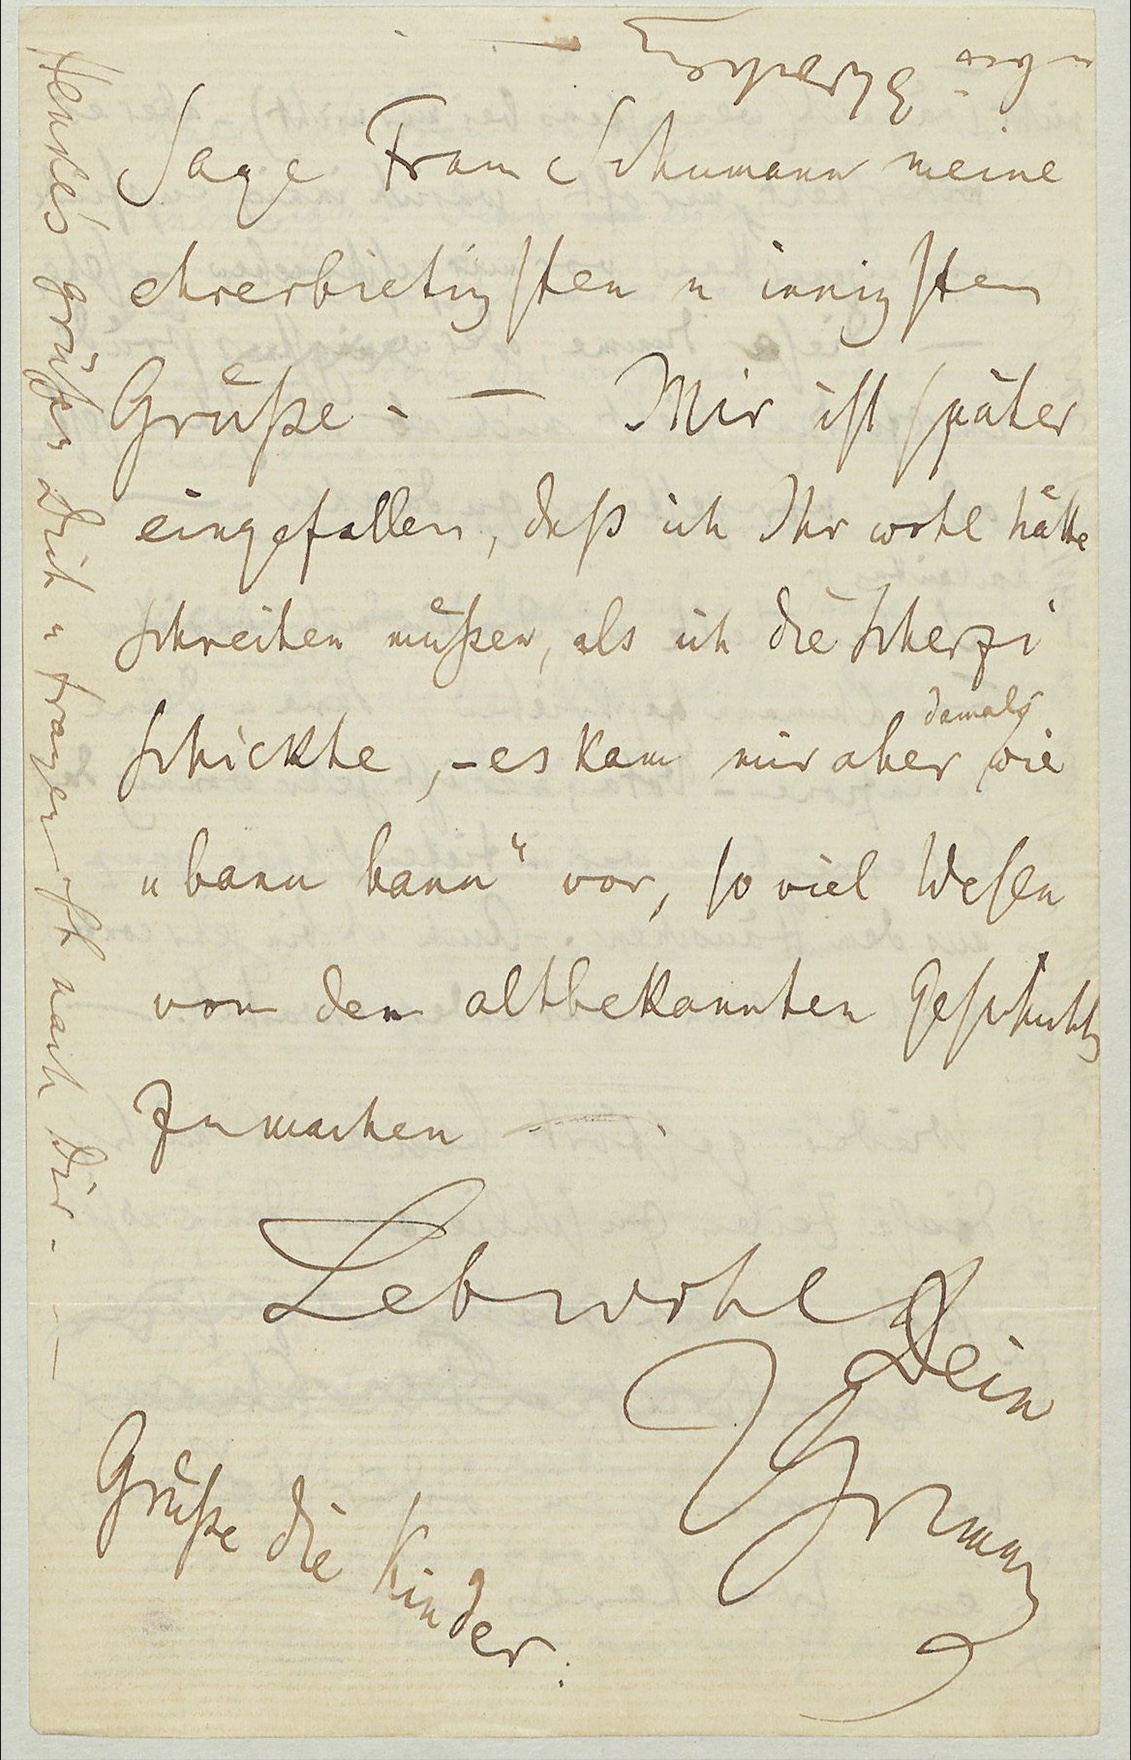 Sage Frau Schumann meine
ehrerbietigsten u innigsten
Grüße. — Mir ist später
eingefallen, daß ich Ihr wohl hätte
schreiben müßen, als ich die Scherzi
schickte, – es kam mir aber damals wie
„ vor, so viel Wesen
von den altbekannten
zu machen —.
Lebwohl Dein
Grüße die Kinder.
grüßen Dich u fragen oft nach Dir. —